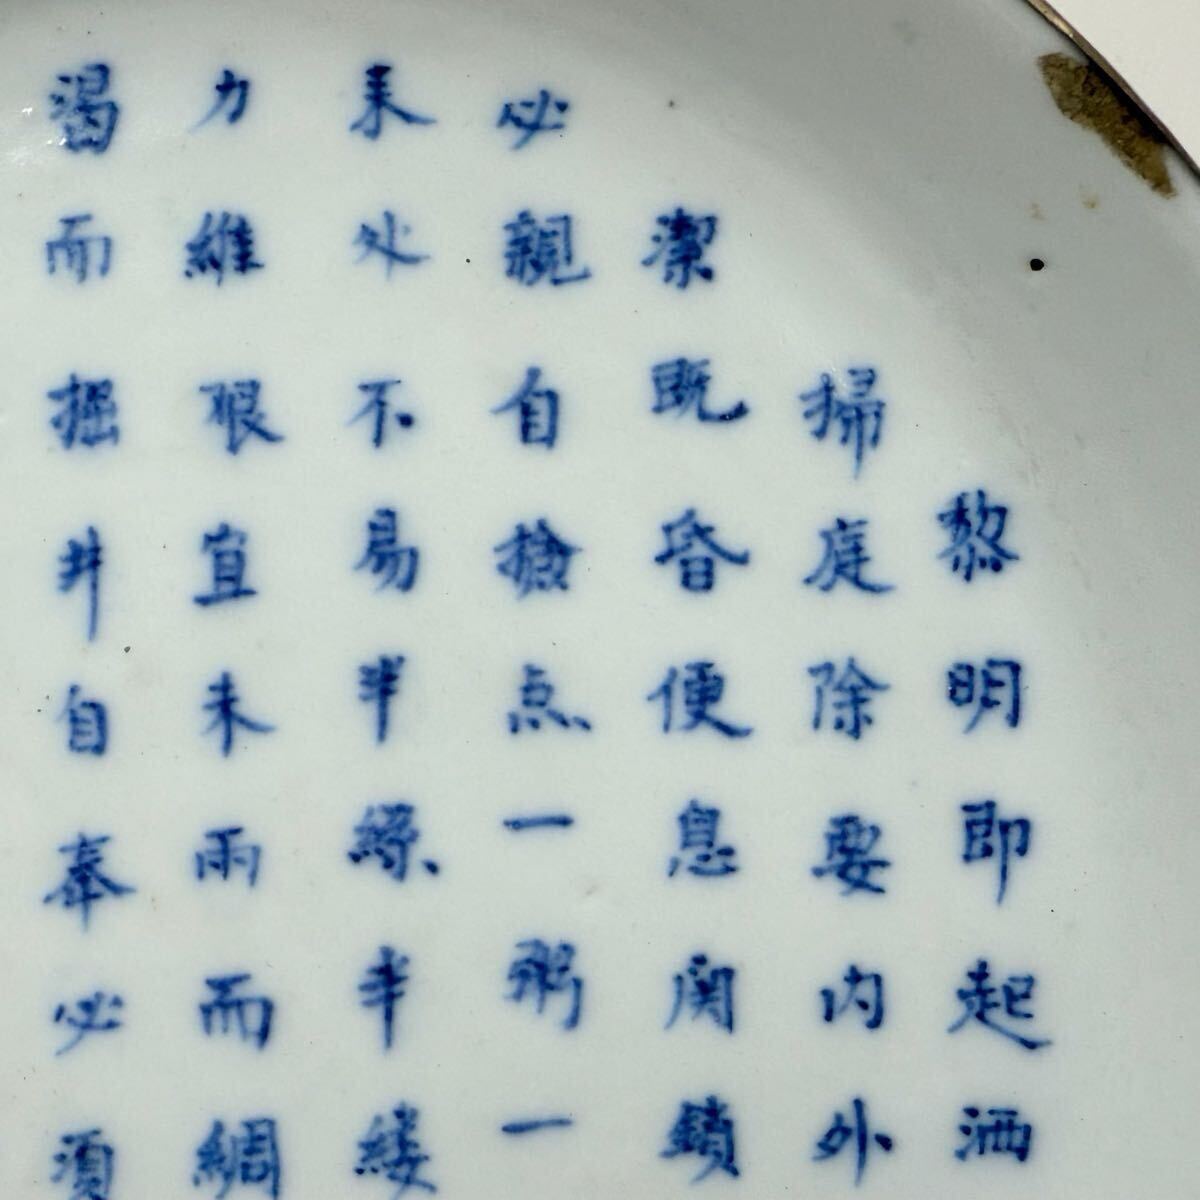 黎明即起洒
掃庭除要内外
潔既昏便息関鎖
必親自撿点一粥一
来处不易半絲半縷
力維艱宜未雨而綢
渴而掘井自奉必須